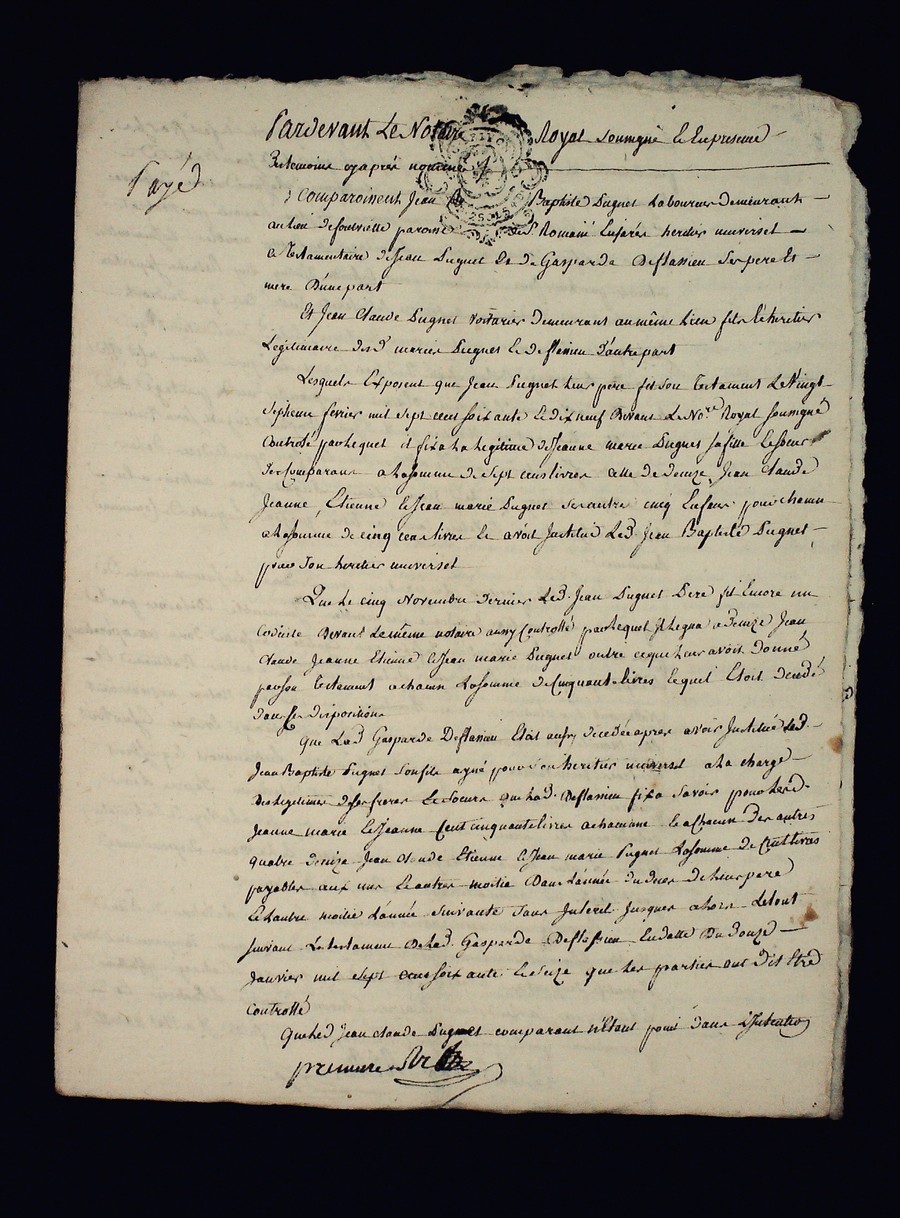 Pardevant Le Notaire Royal soussigné Et En presence
Des temoins cyaprés nommés
Payé
Comparoissent Jean Baptiste Dugnet Laboureur demeurant
au lieu de paroisse de St Romain heritier universel
Et testamentaire de Jean Dugnet Et de Gasparde Deflassieu Ses pere Et
mere D'une part
Et Jean Claude Dugnet demeurant au même Lieu fils Et heritier
Legitimaire desd mariés Dugnet Et deflassieu D'autre part
Lesquels Exposent que Jean Dugnet leur pere fit son testament Le Vingt
Septieme fevrier mil Sept cent soixante Et dix neuf Devant Le Nore Royal Soussigné
Controlé par Lequel il fixa La Legitime de Jeanne marie Dugnet Sa fille Et Soeur
des Comparans a La somme de Sept cens livres celle de denize, Jean Claude
Jeanne, Etienne Et Jean marie Dugnet Ses autres cinq Enfans pour chacun
a La somme de cinq cens livres Et avoit Institué Led Jean Baptiste Dugnet
pour Son heritier universel
Que Le cinq Novembre dernier Led. Jean Dugnet Pere fit Encore un
Codicile Devant Le même notaire aussy Controllé par Lequel Il Legua a denize Jean
Claude Jeanne Etienne Et Jean marie Dugnet outre ce que Leur avoit Donné
par son testament a chacun La somme de Cinquante livres Lequel Etoit decedé
dans Ses dispositions
Que Lad Gasparde Deflassieu Etoit aussy decedée aprés avoir Institué Led
Jean Baptiste Dugnet Son fils ayné pour Son heritier universel a La charge
Des Legitimes de Ses freres Et Soeurs que Lad. Deflassieu fixa Savoir pour Lesd.
Jeanne marie Et Jeanne Cent cinquante livres a chacune Et a Chacun Des autres
quatre denize Jean Claude Etienne Et Jean marie Dugnet La somme de Cent livres
payables aux uns Et autres moitié Dans L'année du deces de Leur pere
Et L'autre moitié L'année Suivante Sans Interet Jusques alors Le tout
Suivant Le testament de Lad. Gasparde Deflassieu En datte Du douze
Janvier mil Sept cens soixante Et Seize que Les parties ont dit Etre
Controllé
Que Led Jean Claude Dugnet comparant n'Etant point dans L'Intention
premiere